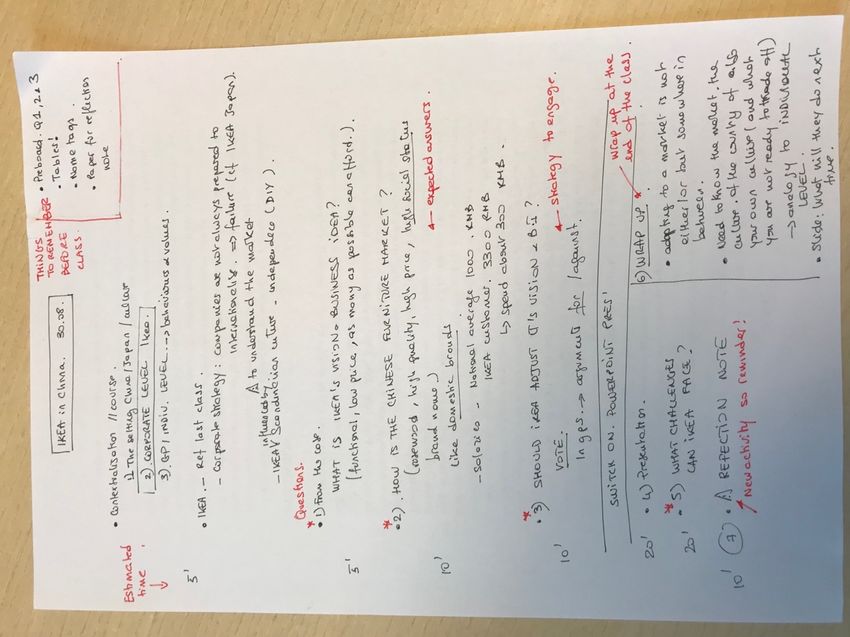 IKEA in China. 30.08.
THINGS
TO REMEMBER
BEFORE
CLASS.
• Preboard. Q1, 2 & 3
• Tables!
• Name tags.
• Paper for reflection
note
Estimated
time.
• Contextualisation // course.
1) The setting China/Japan/culture
2) CORPORATE LEVEL Ikea.
3) GP/ INDIV. LEVEL. → behaviours & values.
5'
• IKEA. - Ref last class.
- Corporate strategy: companies are not always prepared to
internationalise. ⇒ failure (cf IKEA Japan).
to understand the market
influenced by
- IKEA Scandinavian culture - independence (DIY).
Questions.
* • 1) From the case.
WHAT IS IKEA'S VISION & BUSINESS IDEA?
5'
(functional, low price, as many as possible can afford.).
* • 2). HOW IS THE CHINESE FURNITURE MARKET?
(rosewood, high quality, high price, high social status
brand name)
10'
Like domestic brands
← expected answers.
- Salaries - National average 1000. RMB
IKEA customer. 3300 RMB
↳ spend about 300 RMB.
* • 3) SHOULD IKEA ADJUST ITS VISION & BI?
VOTE.
10'
In gps. → arguments for / against.
← strategy to engage.
SWITCH ON. POWERPOINT PRES'
20'
• 4) Presentation.
* • 5) WHAT CHALLENGES
20'
CAN IKEA FACE?
10'
7) • A) REFLECTION NOTE
New activity so reminder!
6) WRAP UP *
wrap up at the
end of the class.
• adapting to a market is not
either/or but somewhere in
between.
• Need to know the market. the
culture. of the country & also
your own culture (and what
you are not ready to trade off)
→ analogy to INDIVIDUAL
LEVEL.
• Slide: What will they do next
time.